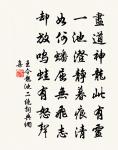 盡道神龍此有靈
一池澄靜暮痕清
如何蟠屈無飛志
却放鳴蛙有怒聲
王令龍池二絕